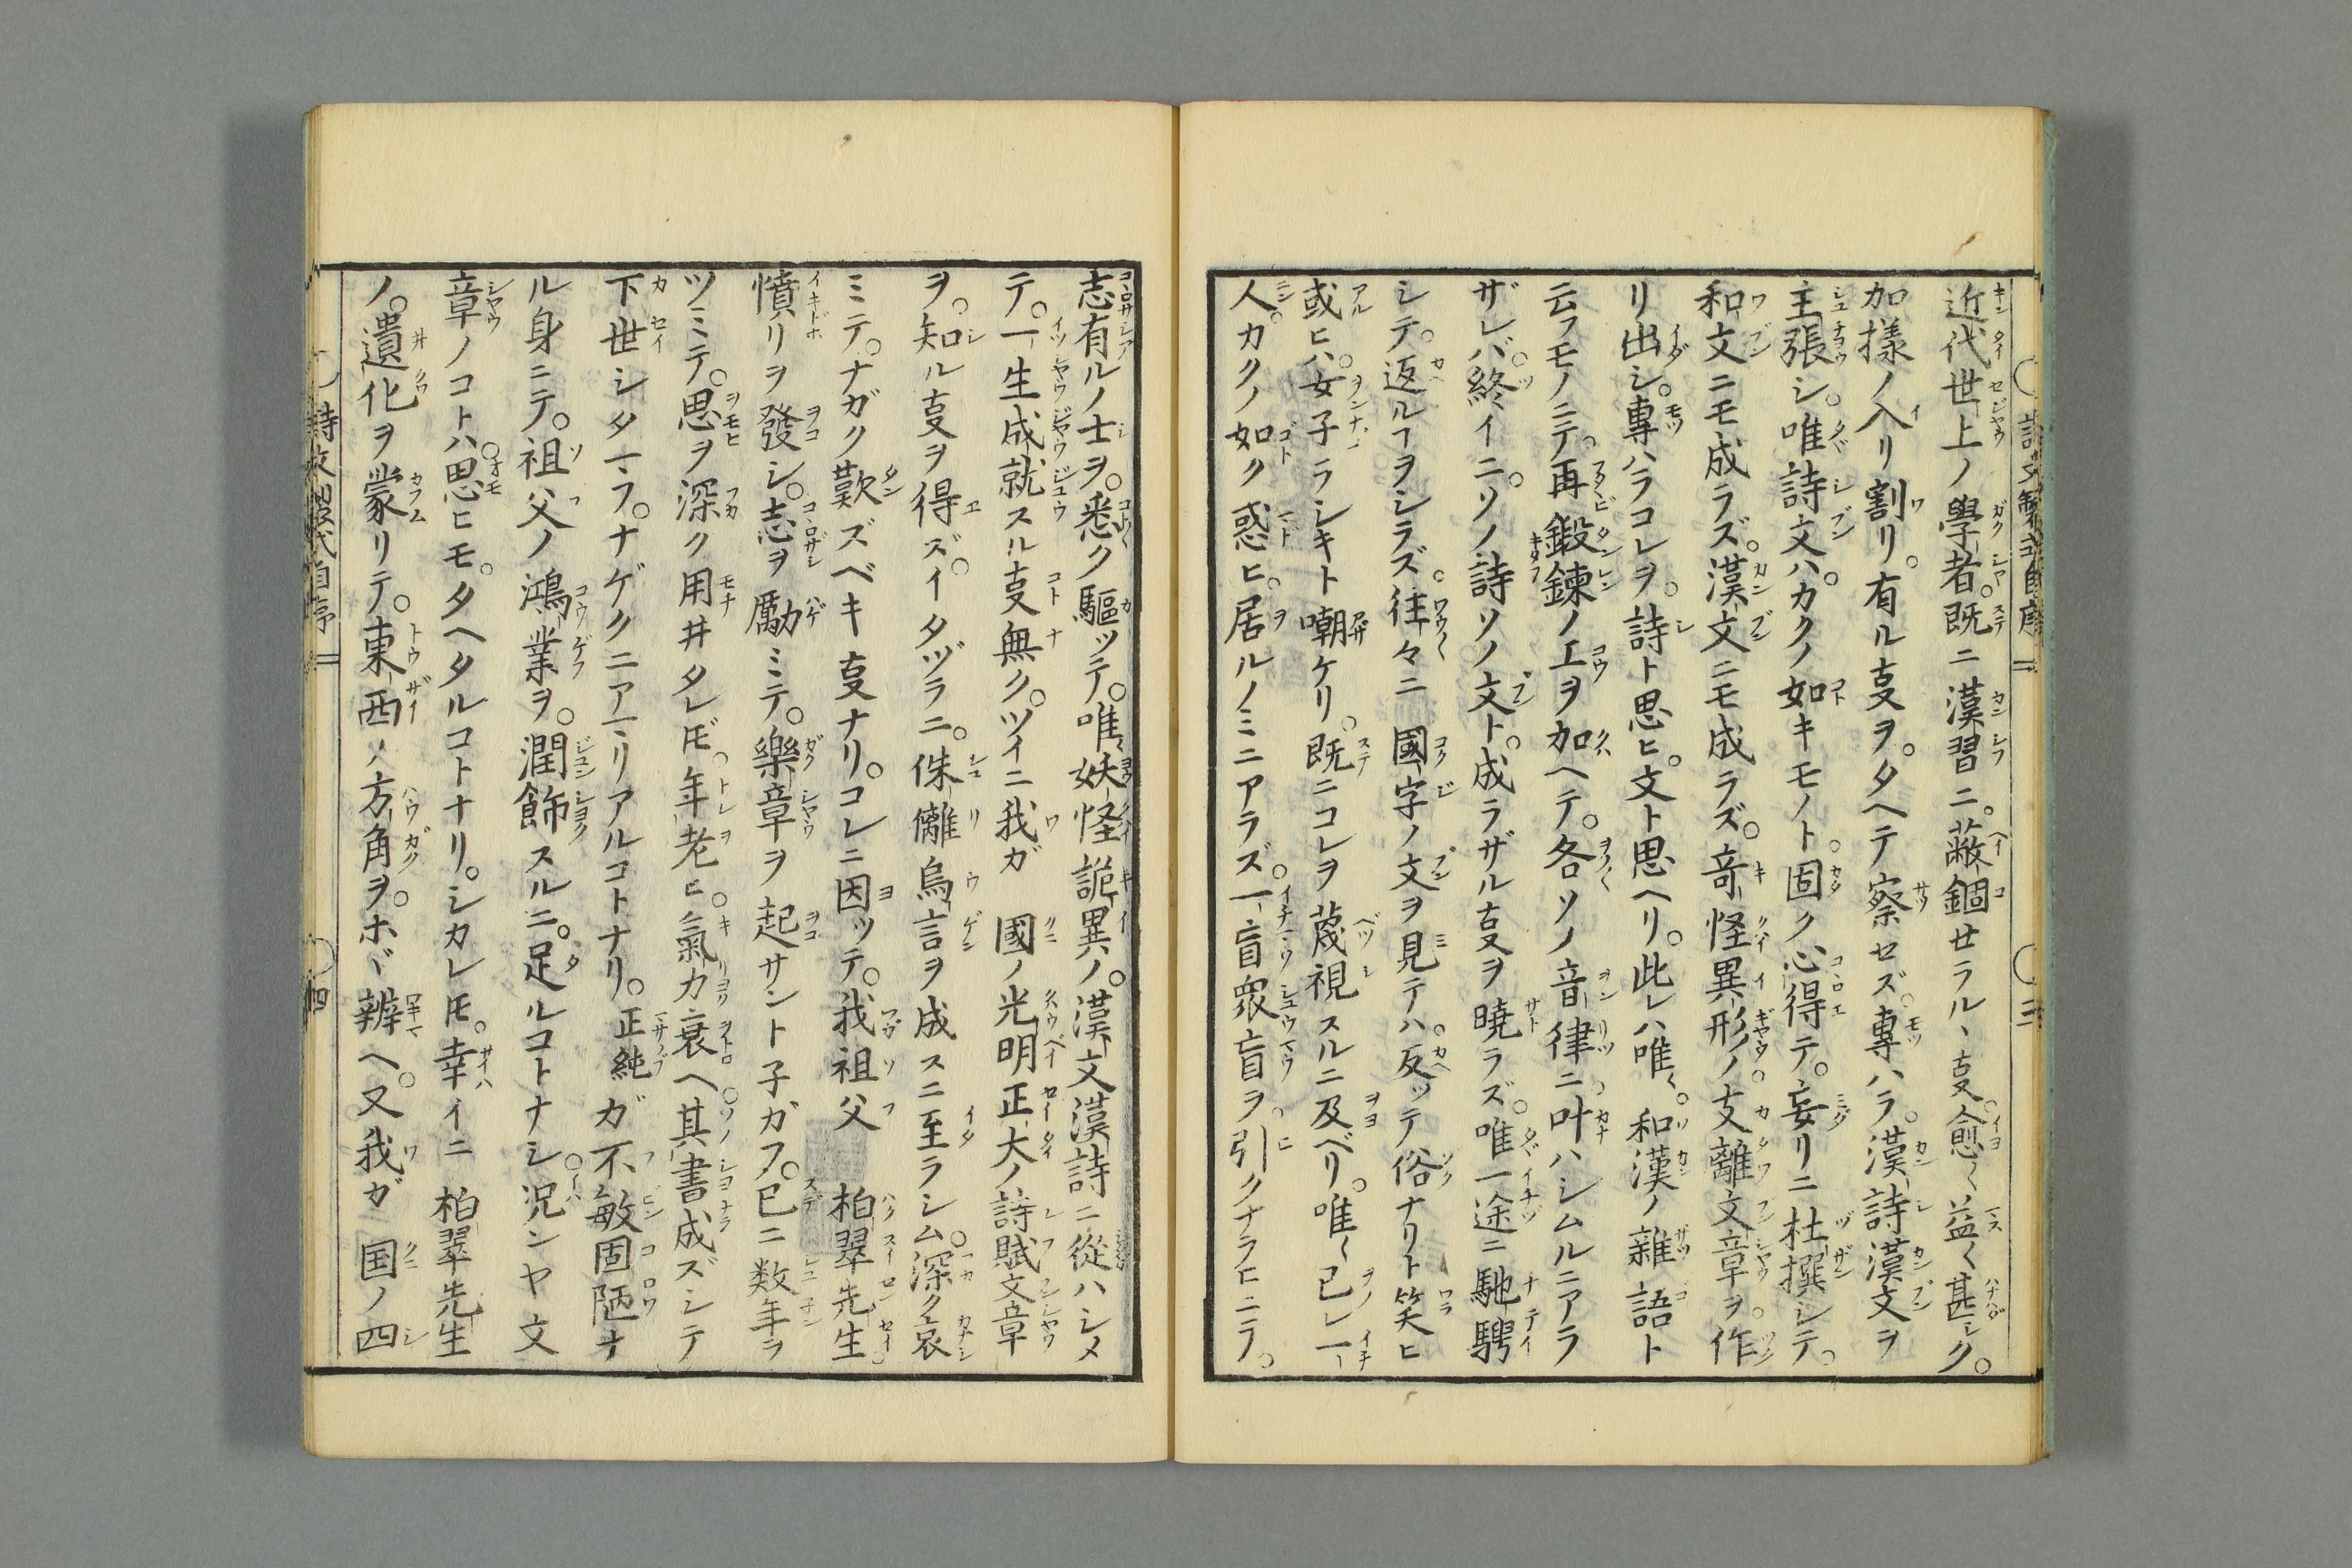 近代世上ノ學者。既ニ漢習ニ。蔽錮セラルヽ支。愈〱益〱甚シク。
加様ノ入リ割リ。有ル支ヲ。タヘテ察セズ。專ハラ。漢詩漢文ヲ
主張シ。唯詩文ハ。カクノ如キモノト。固ク心得テ。妄リニ杜撰シテ。
和文ニモ成ラズ。漢文ニモ成ラズ。竒怪異形ノ。支離文章ヲ。作
リ出シ。專ハラコレヲ。詩ト思ヒ。文ト思ヘリ。此レハ唯〱。和漢ノ雜語ト
云フモノニテ。再鍛錬ノ工ヲ加ヘテ。各ソノ音律ニ。叶ハシムルニアラ
ザレバ。終イニ。ソノ詩ソノ文ト。成ラザル支ヲ曉ラズ。唯一途ニ馳騁
シテ。返ルヿヲシラズ。往々ニ　國字ノ文ヲ見テハ。反ッテ俗ナリト笑ヒ
或ヒハ。女子ラシキト嘲ケリ。既ニコレヲ蔑視スルニ及ベリ。唯〱己レ一
人。カクノ如ク惑ヒ。居ルノミニアラズ。一盲衆盲ヲ。引クナラヒニテ。
詩文製式自序　三
志有ルノ士ヲ。悉ク驅ッテ。唯〻妖怪詭異ノ。漢文漢詩ニ從ハシメ
テ。一生成就スル支無ク。ツイニ我ガ　國ノ光明正大ノ詩賦文章
ヲ。知ル支ヲ得ズ。イタヅラニ。侏離鳥言ヲ成スニ至ラシム。深ク哀
ミテ。ナガク歎ズベキ支ナリ。コレニ因ッテ。我祖父　柏翠先生
憤リヲ發シ。志ヲ勵ミテ。樂章ヲ起サント子ガフ。已ニ数年ヲ
ツミテ。思ヲ深ク用井タレ𪜈。年老ヒ。氣力衰ヘ。其書成ズシテ
下世シタマフ。ナゲクニアマリアルコトナリ。正純ガ不敏固陋ナ
ル身ニテ。祖父ノ鴻業ヲ。潤飾スルニ。足ルコトナシ。况ンヤ文
章ノコトハ。思ヒモ。タヘタルコトナリ。シカレ𪜈。幸イニ　柏翠先生
ノ。遺化ヲ蒙リテ。東西ノ方角ヲ。ホヾ辨ヘ。又我ガ　国ノ四
詩文製式自序　四